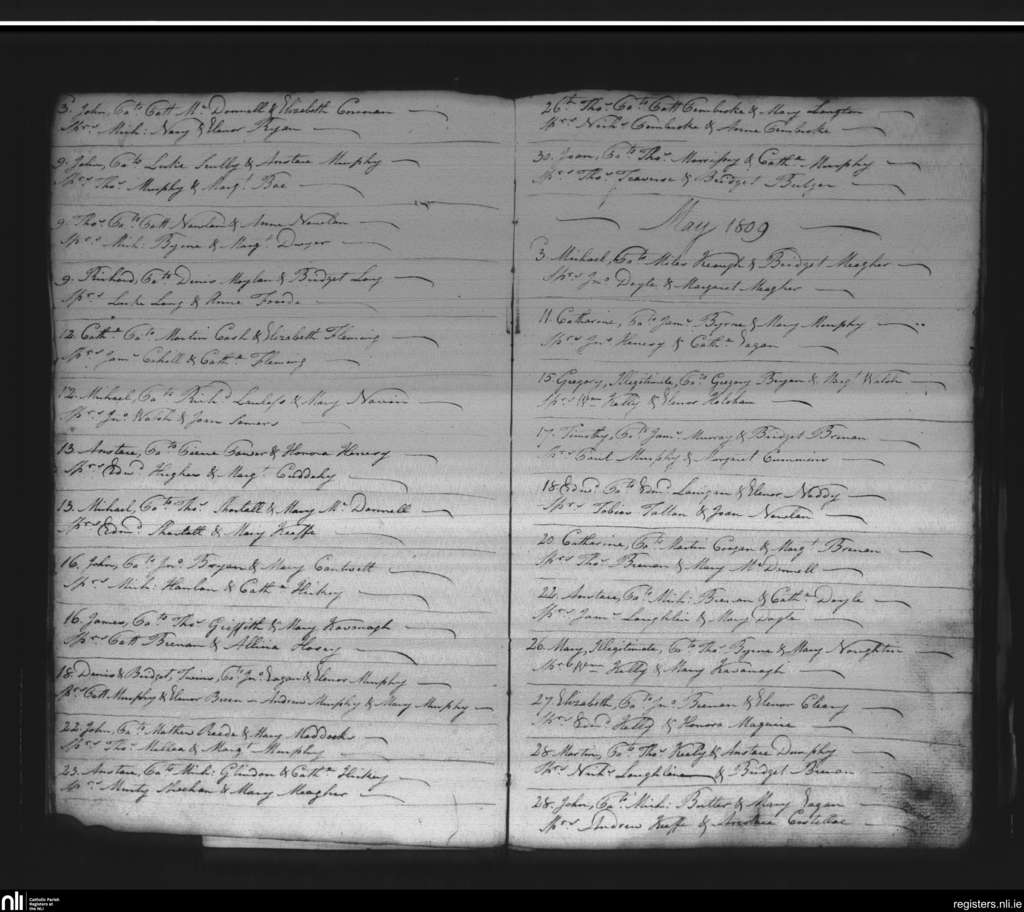 3. John, Co ts Catt Mc Donnell & Elizabeth Corman
Sprs Mich: Neary & Elenor Ryan
9. John, Co ts Luke Scully & Anstace Murphy
Sprs Thos Murphy & Margt Bae
9. Thos Co ts Catt Nowlan & Anne Nowlan
Sprs Mich: Byrne & Margt Dwyer
9. Richard, Co ts Denis Moylan & Bridget Long
Sprs Luke Long & Anne Froode
12. Cathe Co ts Martin Cash & Elizabeth Fleming
Sprs Jams Cahill & Cathe Fleming
12. Michael, Co ts Richd Lawless & Mary
Sprs Jno Walsh & Joan Somers
13. Anstace, Co ts Pierce Power & Honora Henesy
Sprs Edmd Hughes & Margt Cuddehy
13. Michael, Co ts Thos Shortall & Mary Mc Donnell
Sprs Edmd Shortall & Mary Keeffe
16. John, Co ts Jno Bryan & Mary Cantwell
Sprs Mich: Hanlon & Cathe Hickey
16. James, Co ts Thos Griffith & Mary Kavanagh
Sprs Catt Brenan & Allina Hosey
18. Denis & Bridget, Twins, Co ts Jno Eagan & Elenor Murphy
Sprs Catt Murphy & Elenor Breen – Andrew Murphy & Mary Murphy
22. John, Co ts Mathew Reede & Mary Maddock
Sprs Thos & Margt Murphy
23. Anstace, Co ts Mich: Glindon & Cathe Hickey
Sprs Murty Meehan & Mary Meagher
26th Thos Co ts Catt Cembroke & Mary Langton
Sprs Nichs Cembroke & Anne Cembroke
30. Joan, Co ts Thos Morrissy & Cathe Murphy
Sprs Thos Traverse & Bridget Bulger
May 1809
3. Michael, Co ts Miles Keough & Bridget Meagher
Sprs Jno Doyle & Margaret Meagher
11. Catharine, Co ts Jams Byrne & Mary Murphy
Sprs Jno Henesy & Cathe Eagan
15. Gregory, Illegitimate, Co ts Gregory Bryan & Walsh
Sprs Wm Kelly & Elenor Holohan
17. Timothy, Co ts Jams Murray & Bridget Brenan
Sprs Paul Murphy & Margaret Cummins
18. Edmd Co ts Edmd Lanigan & Elenor Noddy
Sprs Tobias Tallan & Joan Nowlan
20. Catharine, Co ts Martin Coogan & Margt Brenan
Sprs Thos Brenan & Mary Mc Donnell
22. Anstace, Co ts Mich: Brenan & Cathe Doyle
Sprs Jams Loughlin & Mary Doyle
26. Mary, Illegitimate, Co ts Thos Byrne & Mary Naughten
Sprs Wm Kelly & Mary Kavanagh
27. Elizabeth, Co ts Jno Brenan & Elenor Cleary
Sprs Edmd Kelly & Honora Maguire
28. Martin, Co ts Thos Keely & Anstace Dunphy
Sprs Nichs Loughlin & Bridget Brenan
28. John, Co ts Mich: Butler & Mary Eagan
Sprs Andrew Keeffe & Anstace Costelloe
nli
Catholic Parish
Registers at
the NLI
registers.nli.ie